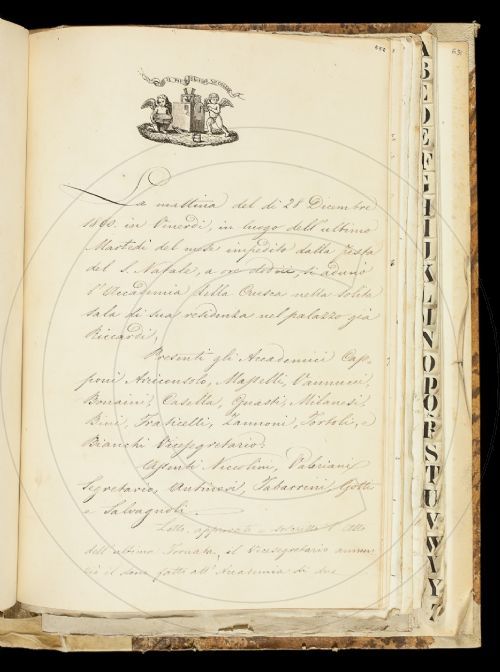 IL PIÙ BEL FIOR NE COGLIE
652
La mattina del dì 28 Decembre
1860. in Venerdì, in luogo dell'ultimo
Martedì del mese impedito dalla festa
del S. Natale, a ore dodici, si adunò
l'Accademia della Crusca nella solita
sala di sua residenza nel palazzo già
Riccardi,
Presenti gli Accademici Cap-
poni Arciconsolo, Masselli, Vannucci,
Bonaini, Casella, Guasti, Milanesi,
Bini, Fraticelli, Zannoni, Tortoli, e
Bianchi Vicesegretario.
Assenti Niccolini, Valeriani
Segretario, Antinori, Tabarrini, Gotti
e Salvagnoli.
Letto, approvato e sottoscritto l'Atto
dell'ultima Tornata, il Vicesegretario annun-
ziò il dono fatto all'Accademia di due
A
B
E
D
E
F
G
H
I
J
K
L
I
N
O
P
Q
R
S
T
U
V
W
X
Y
Z